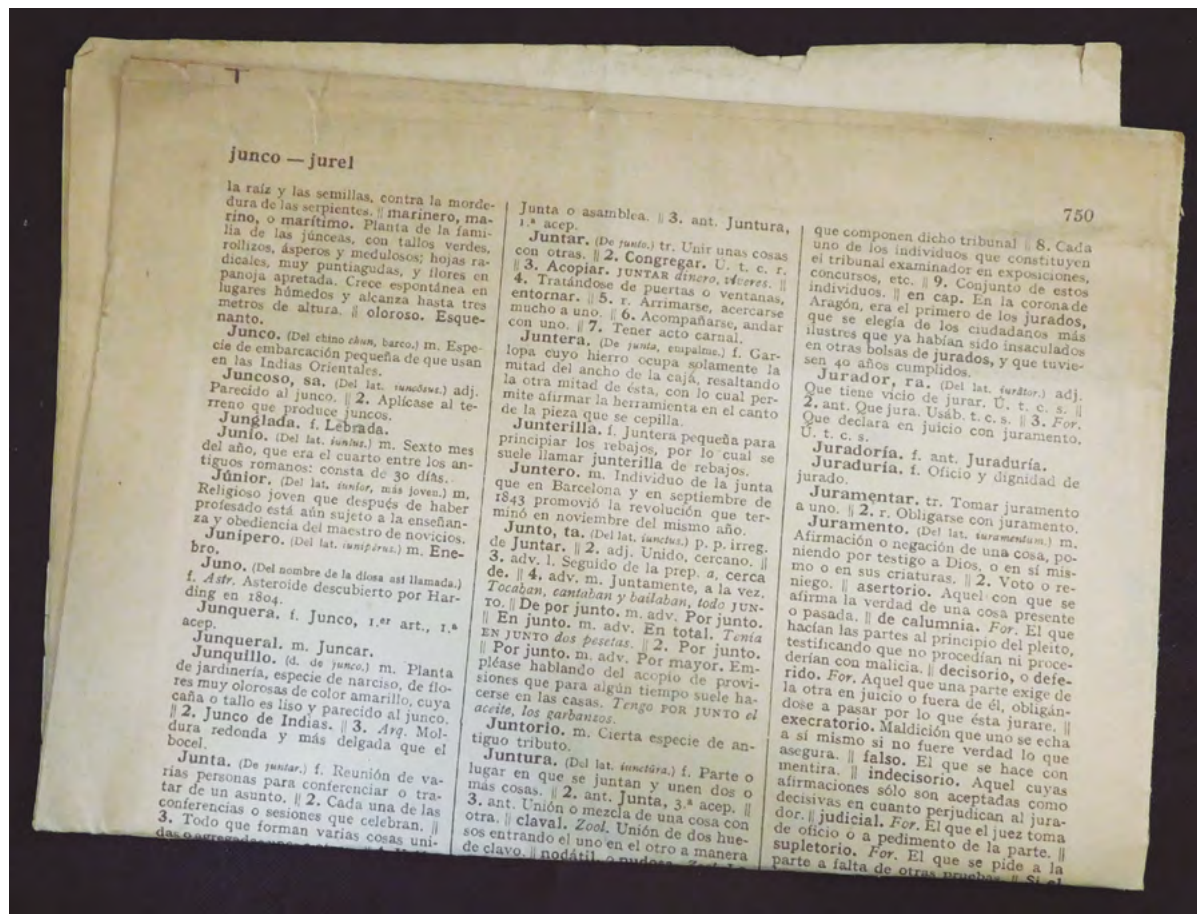 junco — jurel
750
la raíz y las semillas, contra la morde-
dura de las serpientes. || marinero, ma-
rino, o marítimo. Planta de la fami-
lia de las júnceas, con tallos verdes,
rollizos, ásperos y medulosos; hojas ra-
dicales, muy puntiagudas, y flores en
panoja apretada. Crece espontánea en
lugares húmedos y alcanza hasta tres
metros de altura. || oloroso. Esque-
nanto.
Junco. (Del chino chun, barco.) m. Espe-
cie de embarcación pequeña de que usan
en las Indias Orientales.
Juncoso, sa. (Del lat. iuncōsus.) adj.
Parecido al junco. || 2. Aplícase al te-
rreno que produce juncos.
Junglada. f. Lebrada.
Junio. (Del lat. iunīus.) m. Sexto mes
del año, que era el cuarto entre los an-
tiguos romanos: consta de 30 días.
Júnior. (Del lat. iunĭor, más joven.) m.
Religioso joven que después de haber
profesado está aún sujeto a la enseñan-
za y obediencia del maestro de novicios.
Junípero. (Del lat. iunipĕrus.) m. Ene-
bro.
Juno. (Del nombre de la diosa así llamada.)
f. Astr. Asteroide descubierto por Har-
ding en 1804.
Junquera. f. Junco, 1.er art., 1.ª
acep.
Junqueral. m. Juncar.
Junquillo. (d. de junco.) m. Planta
de jardinería, especie de narciso, de flo-
res muy olorosas de color amarillo, cuya
caña o tallo es liso y parecido al junco.
|| 2. Junco de Indias. || 3. Arq. Mol-
dura redonda y más delgada que el
bocel.
Junta. (De juntar.) f. Reunión de va-
rias personas para conferenciar o tra-
tar de un asunto. || 2. Cada una de las
conferencias o sesiones que celebran. ||
3. Todo que forman varias cosas uni-
das o agregadas
Junta o asamblea. || 3. ant. Juntura,
1.ª acep.
Juntar. (De junto.) tr. Unir unas cosas
con otras. || 2. Congregar. Ú. t. c. r.
|| 3. Acopiar. JUNTAR dinero, víveres. ||
4. Tratándose de puertas o ventanas,
entornar. || 5. r. Arrimarse, acercarse
mucho a uno. || 6. Acompañarse, andar
con uno. || 7. Tener acto carnal.
Juntera. (De junta, empalme.) f. Gar-
lopa cuyo hierro ocupa solamente la
mitad del ancho de la caja, resaltando
la otra mitad de ésta, con lo cual per-
mite afirmar la herramienta en el canto
de la pieza que se cepilla.
Junterilla. f. Juntera pequeña para
principiar los rebajos, por lo cual se
suele llamar junterilla de rebajos.
Juntero. m. Individuo de la junta
que en Barcelona y en septiembre de
1843 promovió la revolución que ter-
minó en noviembre del mismo año.
Junto, ta. (Del lat. iunctus.) p. p. irreg.
de Juntar. || 2. adj. Unido, cercano. ||
3. adv. l. Seguido de la prep. a, cerca
de. || 4. adv. m. Juntamente, a la vez.
Tocaban, cantaban y bailaban, todo JUN-
TO. || De por junto. m. adv. Por junto.
|| En junto. m. adv. En total. Tenía
EN JUNTO dos pesetas. || 2. Por junto.
|| Por junto. m. adv. Por mayor. Em-
pléase hablando del acopio de provi-
siones que para algún tiempo suele ha-
cerse en las casas. Tengo POR JUNTO el
aceite, los garbanzos.
Juntorio. m. Cierta especie de an-
tiguo tributo.
Juntura. (Del lat. iunctūra.) f. Parte o
lugar en que se juntan y unen dos o
más cosas. || 2. ant. Junta, 3.ª acep. ||
3. ant. Unión o mezcla de una cosa con
otra. || claval. Zool. Unión de dos hue-
sos entrando el uno en el otro a manera
de clavo. || nodátil, o nudosa.
que componen dicho tribunal || 8. Cada
uno de los individuos que constituyen
el tribunal examinador en exposiciones,
concursos, etc. || 9. Conjunto de estos
individuos. || en cap. En la corona de
Aragón, era el primero de los jurados,
que se elegía de los ciudadanos más
ilustres que ya habían sido insaculados
en otras bolsas de jurados, y que tuvie-
sen 40 años cumplidos.
Jurador, ra. (Del lat. iurātor.) adj.
Que tiene vicio de jurar. Ú. t. c. s. ||
2. ant. Que jura. Usáb. t. c. s. || 3. For.
Que declara en juicio con juramento.
Ú. t. c. s.
Juradoría. f. ant. Juraduría.
Juraduría. f. Oficio y dignidad de
jurado.
Juramentar. tr. Tomar juramento
a uno. || 2. r. Obligarse con juramento.
Juramento. (Del lat. iuramentum.) m.
Afirmación o negación de una cosa, po-
niendo por testigo a Dios, o en sí mis-
mo o en sus criaturas. || 2. Voto o re-
niego. || asertorio. Aquel con que se
afirma la verdad de una cosa presente
o pasada. || de calumnia. For. El que
hacían las partes al principio del pleito,
testificando que no procedían ni proce-
derían con malicia. || decisorio, o defe-
rido. For. Aquel que una parte exige de
la otra en juicio o fuera de él, obligán-
dose a pasar por lo que ésta jurare. ||
execratorio. Maldición que uno se echa
a sí mismo si no fuere verdad lo que
asegura. || falso. El que se hace con
mentira. || indecisorio. Aquel cuyas
afirmaciones sólo son aceptadas como
decisivas en cuanto perjudican al jura-
dor. || judicial. For. El que el juez toma
de oficio o a pedimento de la parte. ||
supletorio. For. El que se pide a la
parte a falta de otras pruebas. || Si el